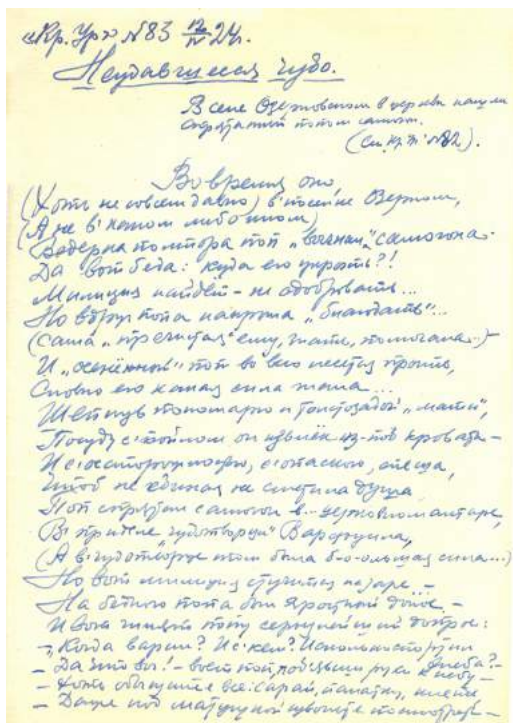 «Кр. Ур.» №83 12/IV 24г.
Неудавшееся чудо.
В селе Озерновском в церкви нашли
спрятанный попом самогон.
(См. Кр. Ур. №82).
Во время оно,
(Хоть не совсем давно) в поселке Верхнем,
(А не в каком либо ином)
Ведерка полтора поп „выгнал" самогона.
Да вот беда: куда его упрятать?!
Милиция найдёт – не одобрять...
Но вдруг попа накрыла „благодать"...
(Сама „пречистая" ему, знать, помогала.) –
И „осенённый" поп во всю несётся прыть,
Словно его какая сила гнала...
Шепнув пономарю и толстозадой „мати",
Посуду с пойлом он извлёк из-под кровати –
И с осторожностью, с опаскою, спеша,
Чтоб не единая не сметила душа
Поп спрятал самогон в... церковном алтаре,
В приделе „чудотворца" Варфушила,
(А в чудотворце этом была б-о-ольшая сила...)
Но вот милиция стучится на заре... –
На бедного попа был яростный донос. –
И вот чинят попу серьезнейший допрос:
– „Когда варил? И с кем? И сколько
– Да что вы! – воет поп, подъявши руки к небу –
– Хоть обыщите всё: сарай, палатку,
– Даже под матушкой извольте посмотреть –